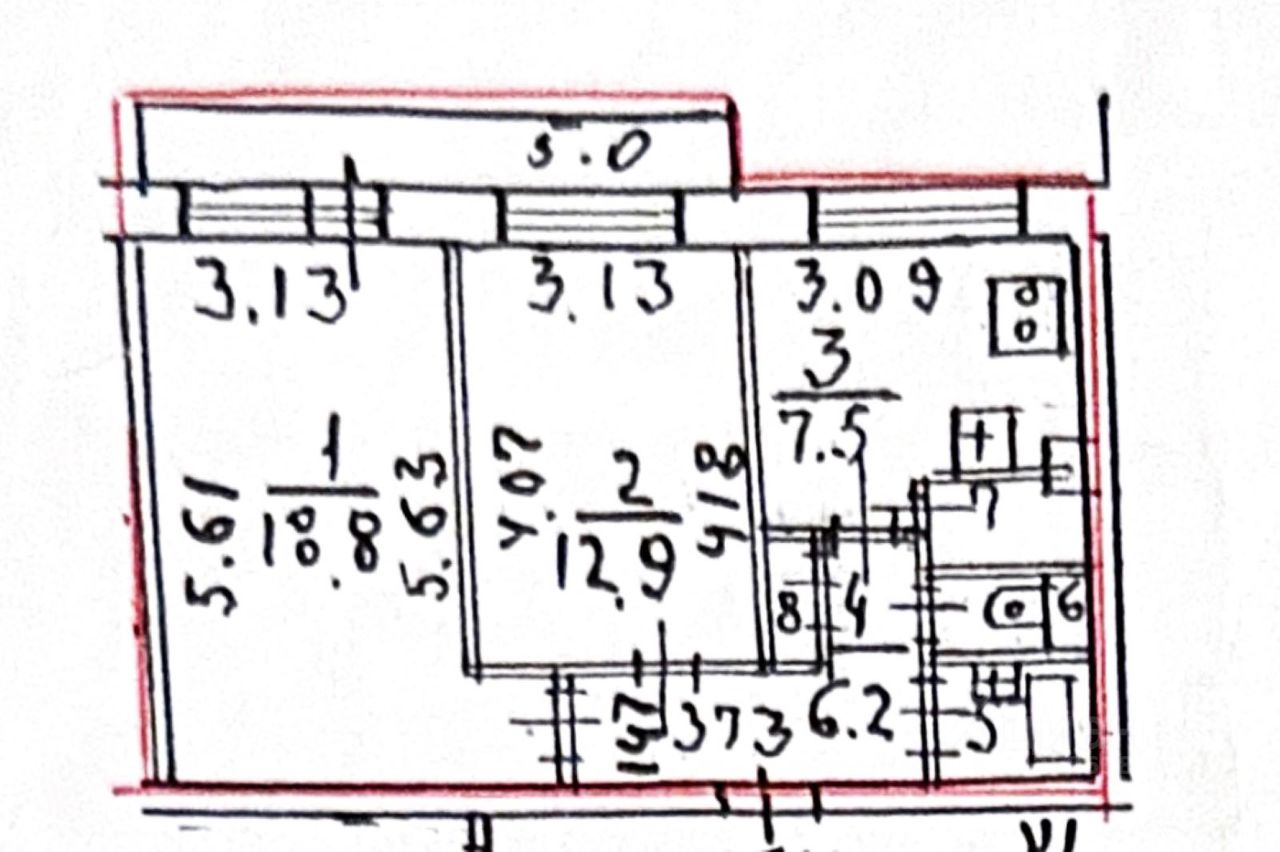 5.0
3.13
3.13
3.09
3
7.5
1
18.8
5.61
5.63
2
12.9
4.07
4.18
7
8
4
6.2
6
5
1.47
3.73